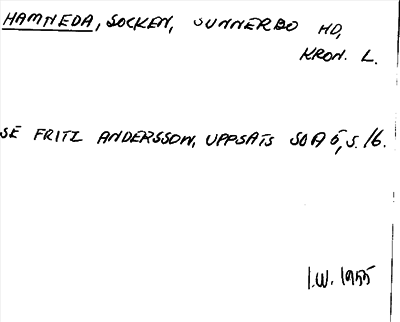 HAMNEDA, SOCKEN, SUNNERBO HD,
KRON. L.
SE FRITZ ANDERSSON, UPPSATS SOA 5, S. 16.
I.W. 1955